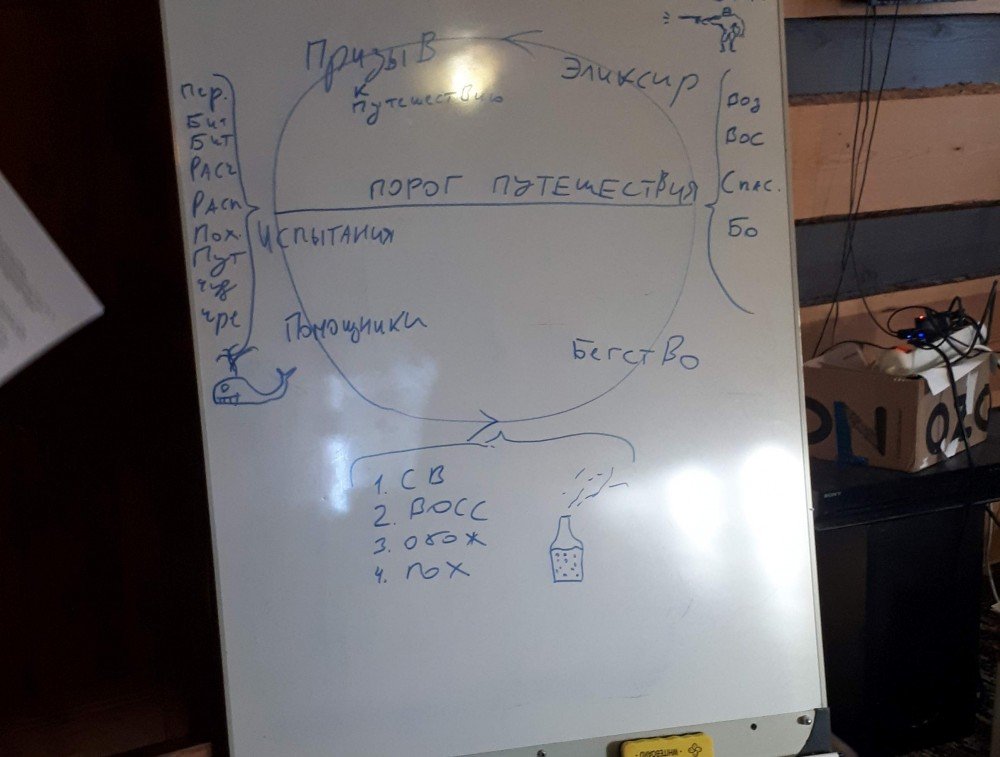 Призыв
к
путешествию
Эликсир
Пер.
Бит
Бит
Расч
Расп
Пох.
Пут
Чуд
Чре
Воз
Вос
Спас.
Бо
ПОРОГ ПУТЕШЕСТВИЯ
ИСПЫТАНИЯ
Помощники
Бегство
1. СВ
2. ВОСС
3. ОБОЖ
4. ПОХ
OZO
SONY
WHITEBOARD